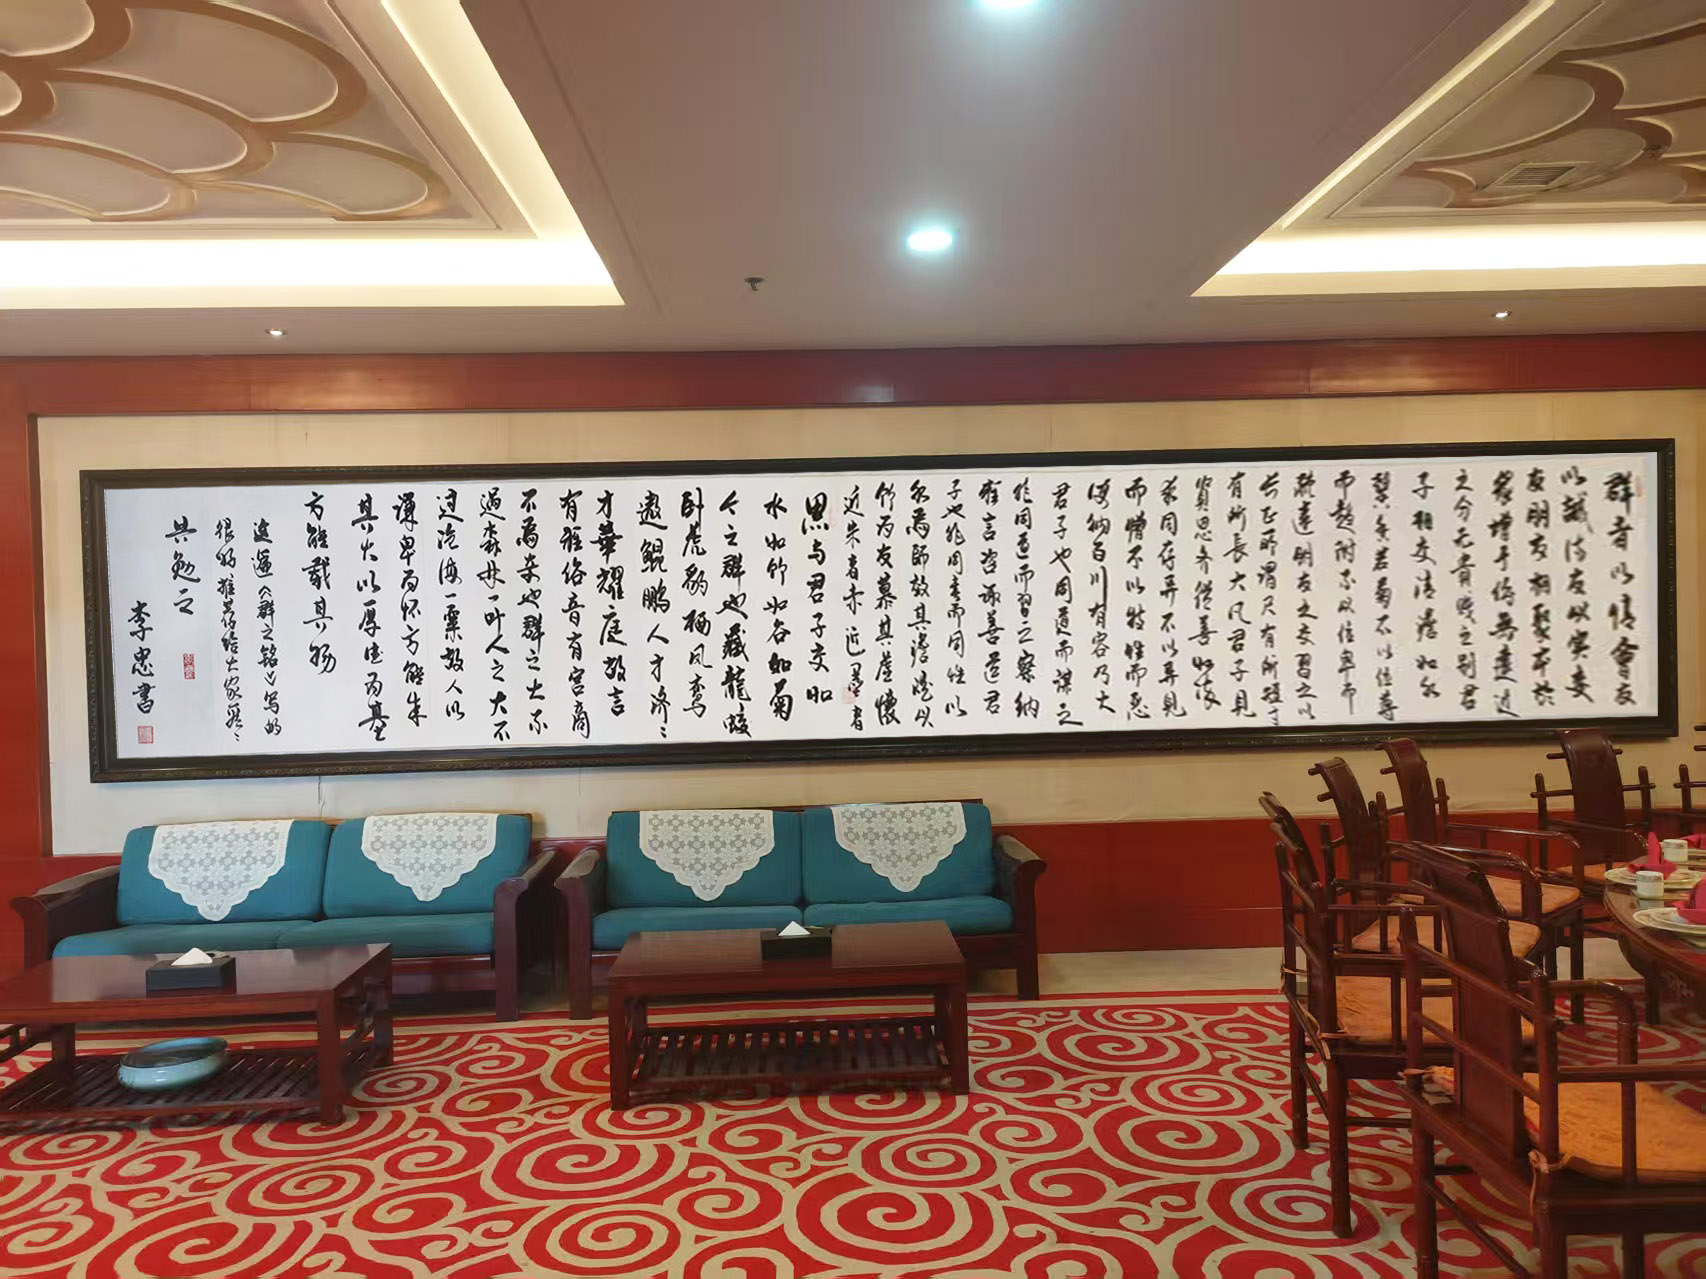 群者以情會友
以誠待友以實交
友朋友相聚本於
緣增于信無遠近
之分无貴賤之别君
子相交清澹如水
馨香若菊不以位尊
而趨附不以位卑而
疏遠朋友之交習之以
长正所謂尺有所短寸
有所長大凡君子見
賢思齐從善如流
求同存异不以异見
而憎不以特性而惡
海纳百川有容乃大
君子也同道而謀之
非同道而習之察納
雅言咨諏善道君
子也非同素而同性以
水為師效其澹澹以
竹为友慕其虚懷
近朱者赤近墨者
黑与君子交如
水如竹如谷如菊
人之群也藏龍蛟
卧虎豹栖凤鸾
遨鯤鹏人才济濟
才華耀庭故言
有雅俗音有宫商
不為奇也群之大不
過森林一叶人之大不
过沧海一粟故人以
謙卑为怀方能成
其大以厚德为基
方能載其物
這遍《群之銘》写的
很好推荐给大家共
共勉之
李忠書